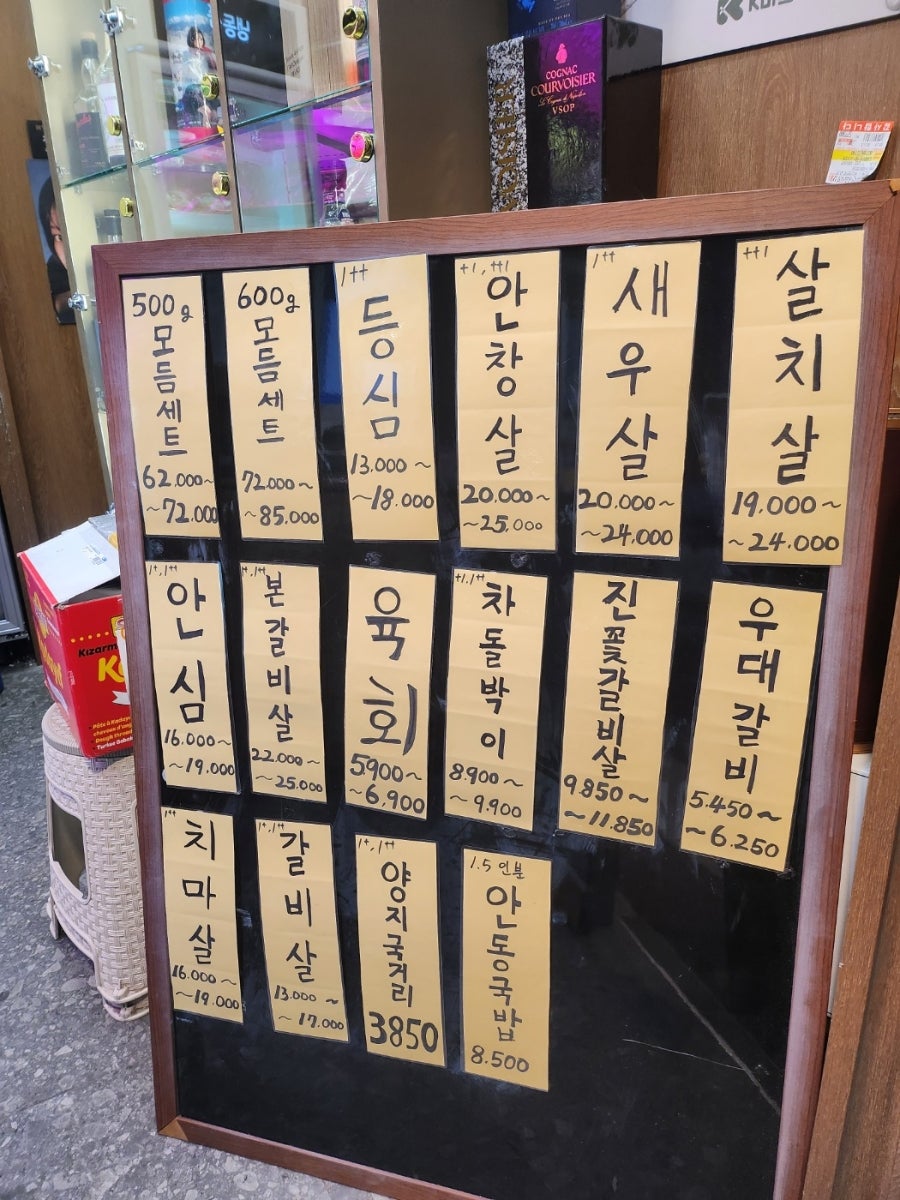 COGNAC
COURVOISIER
Le Cognac de Napoléon
VSOP
500g
모듬세트
62.000~
~72.000
600g
모듬세트
72.000~
~85.000
1++
등심
13.000~
~18.000
+1, ++1
안창살
20.000~
~25.000
1++
새우살
20.000~
~24.000
++1
살치살
19.000~
~24.000
1+, 1++
안심
16.000~
~19.000
1+, 1++
본갈비살
22.000~
~25.000
육회
5900~
~6,900
+1, 1++
차돌박이
8.900~
~9.900
진꽃갈비살
9.850~
~11.850
우대갈비
5.450~
~6.250
1++
치마살
16.000~
~19.000
1+, 1++
갈비살
13.000~
~17.000
1+, 1++
양지국거리
3850
1.5인분
안동국밥
8.500
Kızarm